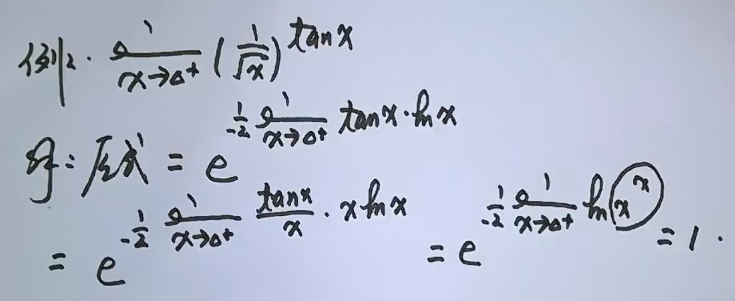 例2. lim x→0⁺ (1/√x)^tanx
解:原式 = e^(-1/2 lim x→0⁺ tanx·lnx)
= e^(-1/2 lim x→0⁺ tanx/x · xlnx) = e^(-1/2 lim x→0⁺ ln(x^x)) = 1.